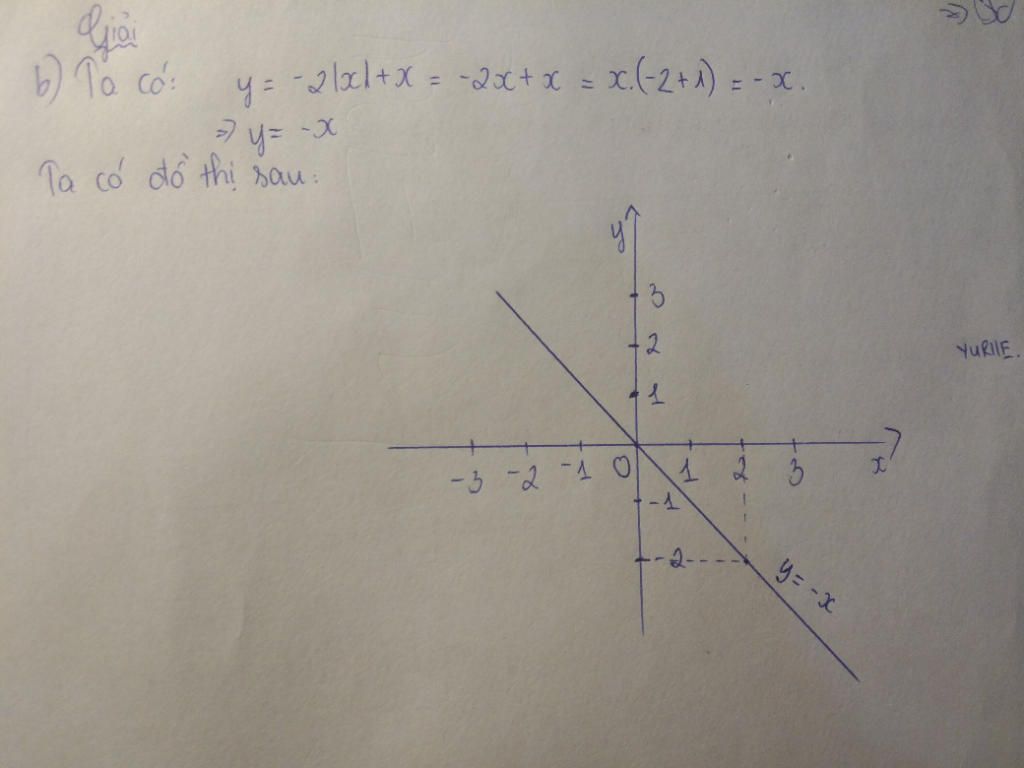 Giải
b) Ta có: y = -2|x|+x = -2x+x = x.(-2+1) = -x.
=> y = -x
Ta có đồ thị sau:
y
3
2
YURIIE.
1
-3 -2 -1 O 1 2 3 x
-1
-2
y=-x